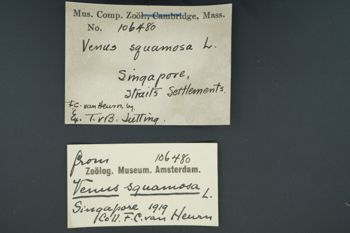 Mus. Comp. Zoöl., Cambridge, Mass.
No. 106480
Venus squamosa L.
Singapore,
Straits Settlements.
F.C. van Heurn, leg.
Ex. T. v B. Jutting.
from 106480
Zoölog. Museum. Amsterdam.
Venus squamosa L.
Singapore 1919
(Coll. F.C. van Heurn